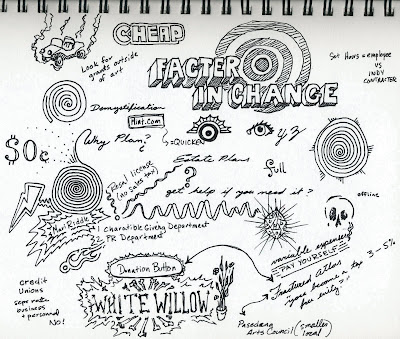 CHEAP
Look for
grants outside
of art
FACTER
IN CHANGE
Set Hours = employee
VS
INDY
CONTRACTER
Demystification
Mint.com
= QUICKEN
Why Plan?
$0¢
Estate Plans
full
Resal license
(no sales tax)
get help if you need it?
offline
Mari Riddle
1 Charatible Giving Department
2 PR Department
variable expenses
PAY YOURSELF
3-5%
Donation Button
Fractured Atlas
"you become a
for entity"
credit
Unions
seperate
business
+ personal
NO!
WHITE WILLOW
Pasadena
Arts Council (smaller
local)